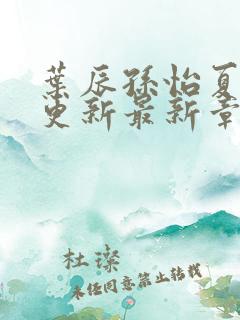 葉辰孫怡夏
更新最新章
杜璨
未经同意禁止转载